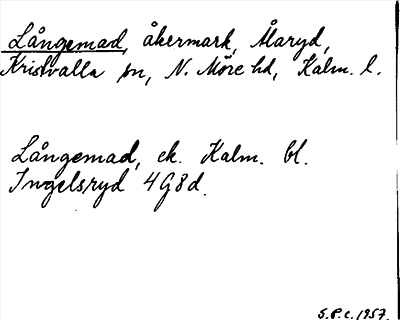 Långemad, åkermark, Åkaryd,
Kristvalla sn, N. Möre hd, Kalm. l.
Långemad, ek. Kalm. bl.
Ingelsryd 4G8d.
S.P.C. 1957.